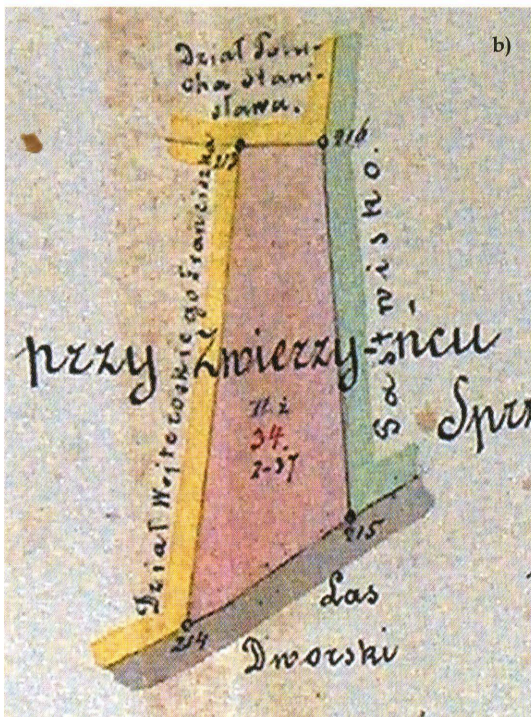 b)
Dział Swie-
cha Stani-
sława.
213
216
Dział Wojterowskiego Franciszka
Pastwisko.
przy Zwierzyńcu
34.
2-37
215
214
Las
Dworski